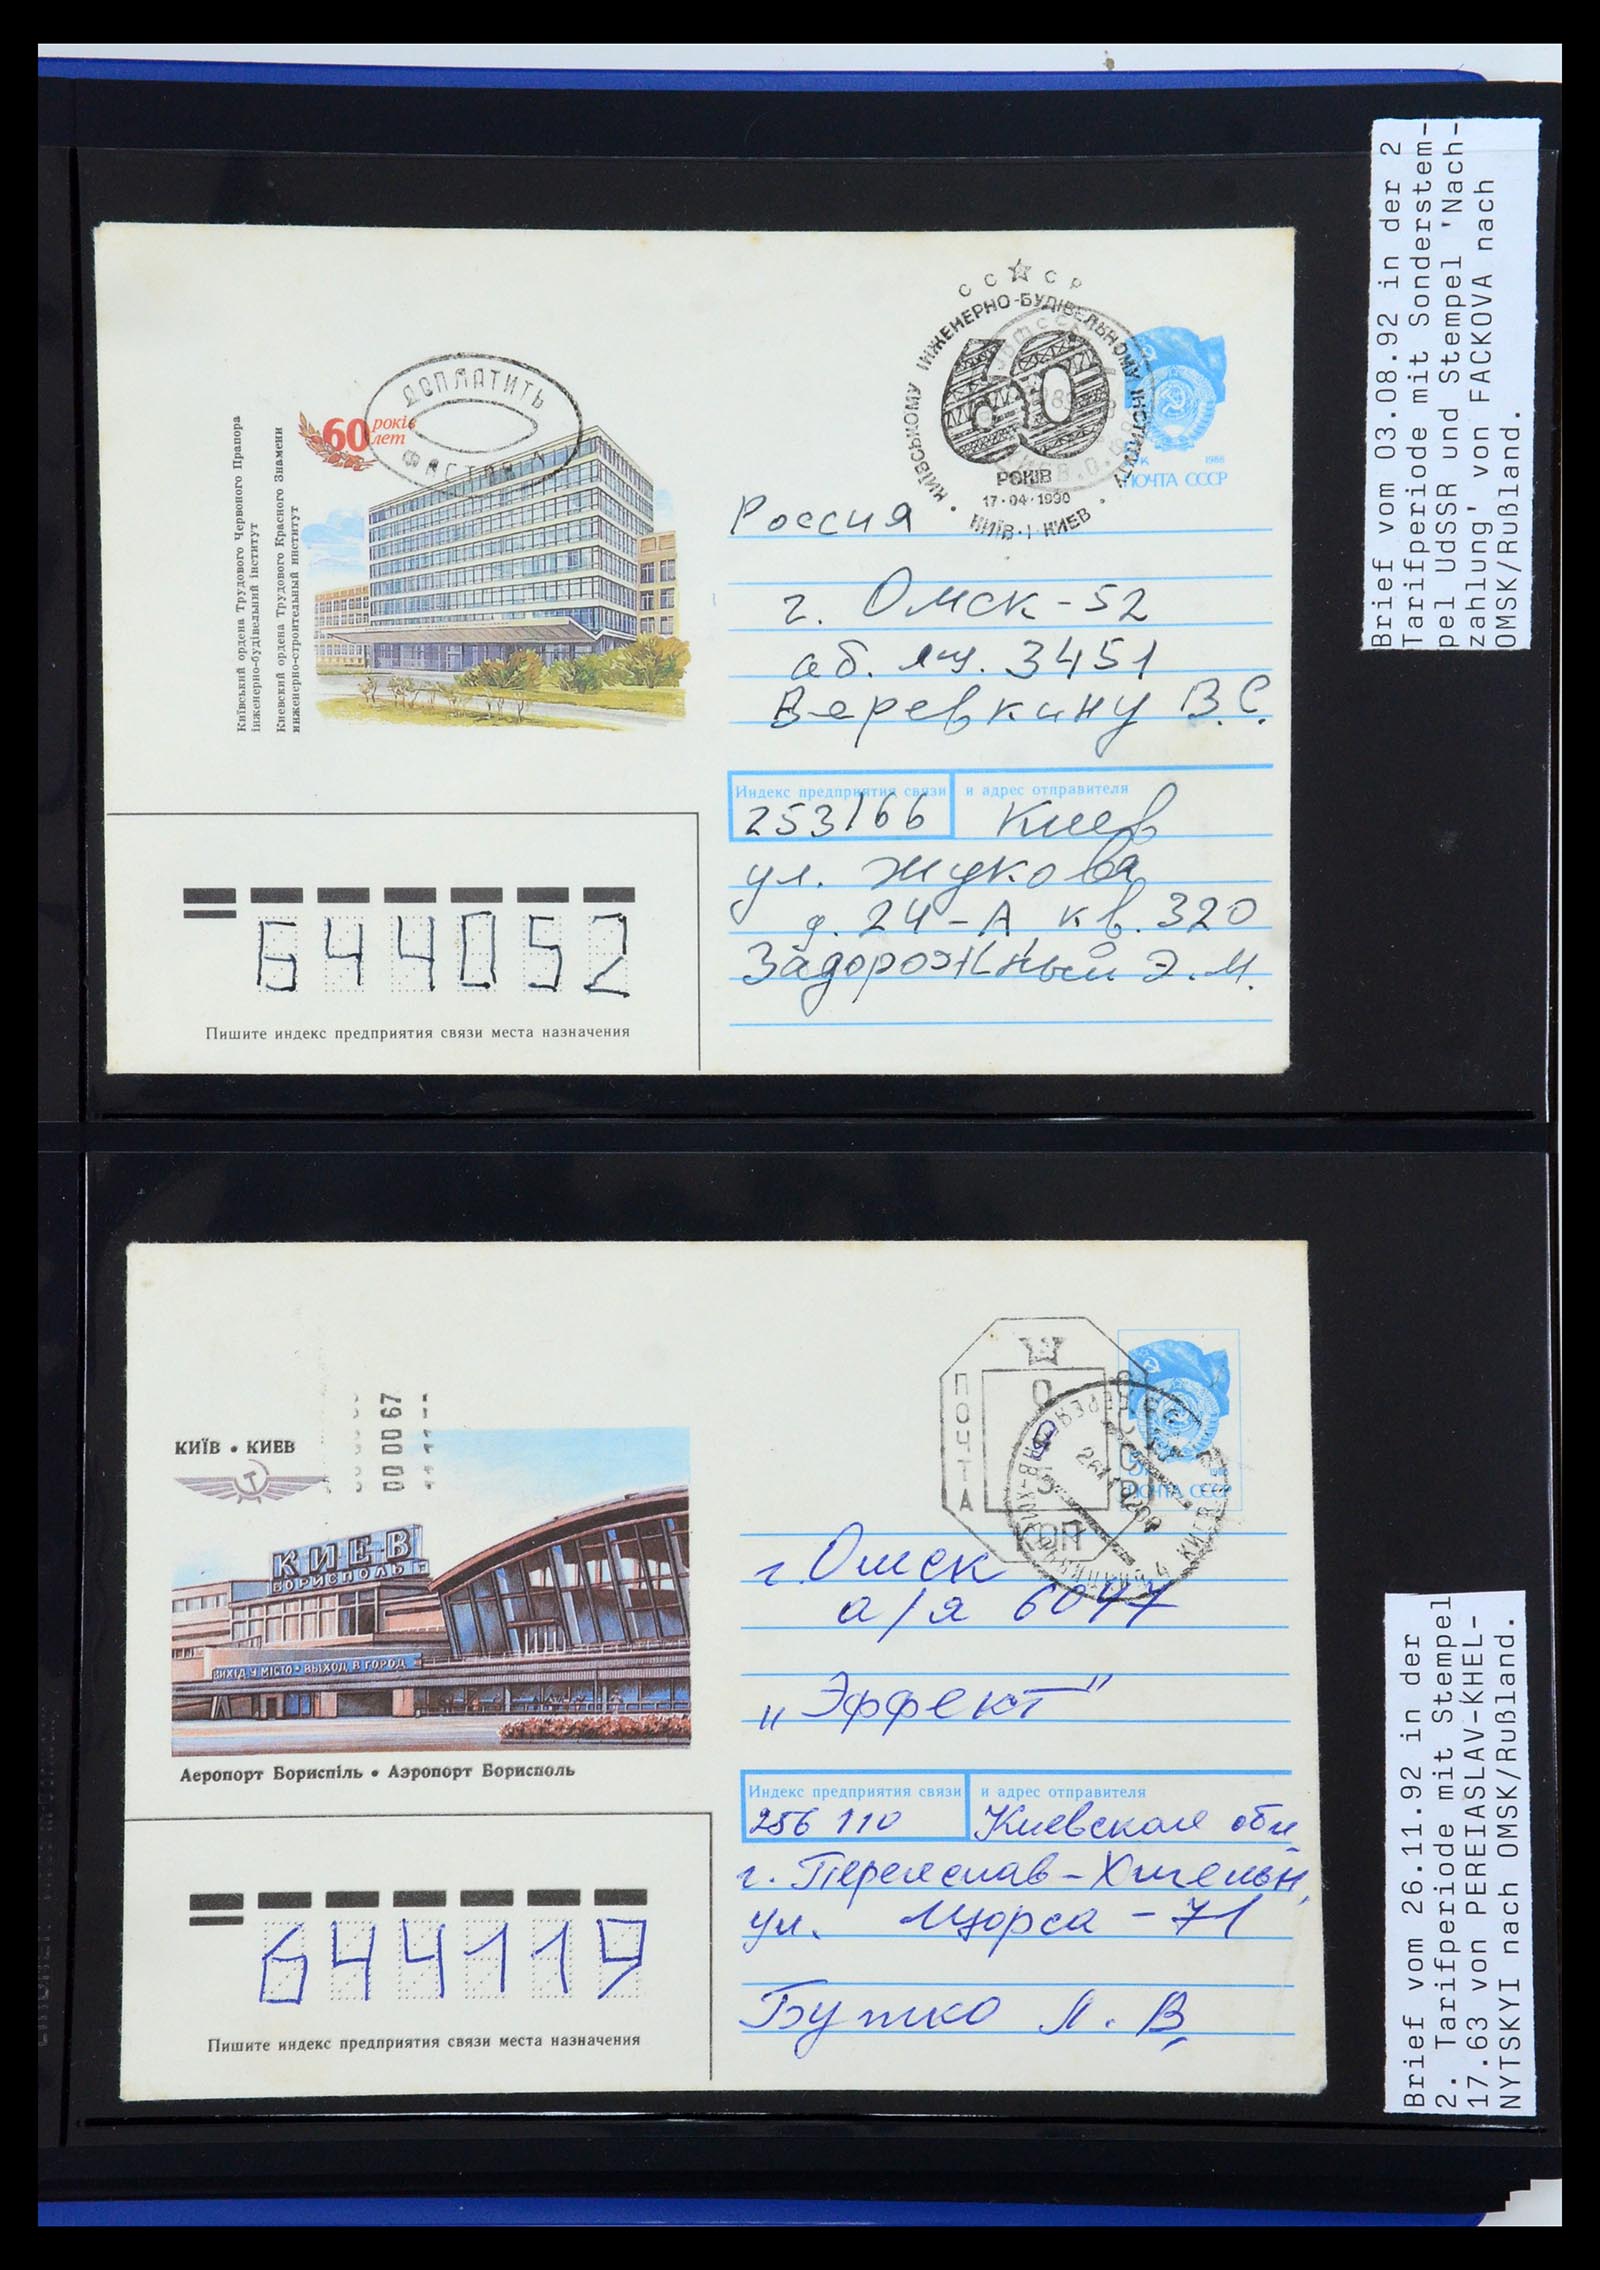 Brief vom 03.08.92 in der 2
Tarifperiode mit Sonderstem-
pel UdSSR und Stempel 'Nach-
zahlung' von FACKOVA nach
OMSK/Rußland.
СССР
КИЇВСЬКОМУ ІНЖЕНЕРНО-БУДІВЕЛЬНОМУ ІНСТИТУТУ
60
РОКІВ
17·04·1990
КИЇВ·1·КИЕВ
1988
ПОЧТА СССР
ДОПЛАТИТЬ
60 років
лет
Київський ордена Трудового Червоного Прапора
інженерно-будівельний інститут
Киевский ордена Трудового Красного Знамени
инженерно-строительный институт
Россия
г. Омск-52
аб. ящ. 3451
Веревкину В.С.
Индекс предприятия связи
и адрес отправителя
253166
Киев
ул. Жукова
д. 24-А кв. 320
Задорожный Э.М.
644052
Пишите индекс предприятия связи места назначения
КИЇВ • КИЕВ
000067
КИЕВ
БОРИСПОЛЬ
ВИХІД У МІСТО • ВЫХОД В ГОРОД
Аеропорт Бориспіль • Аэропорт Борисполь
ПОЧТА
КОП
ПОЧТА СССР
г. Омск
а/я 6047
„Эффект"
Индекс предприятия связи
и адрес отправителя
256 110
Киевская обл
г. Переяслав-Хмельн,
ул. Щорса - 71
Бутко Л. В.
644119
Пишите индекс предприятия связи места назначения
Brief vom 26.11.92 in der
2. Tarifperiode mit Stempel
17.63 von PEREIASLAV-KHEL-
NYTSKYI nach OMSK/Rußland.